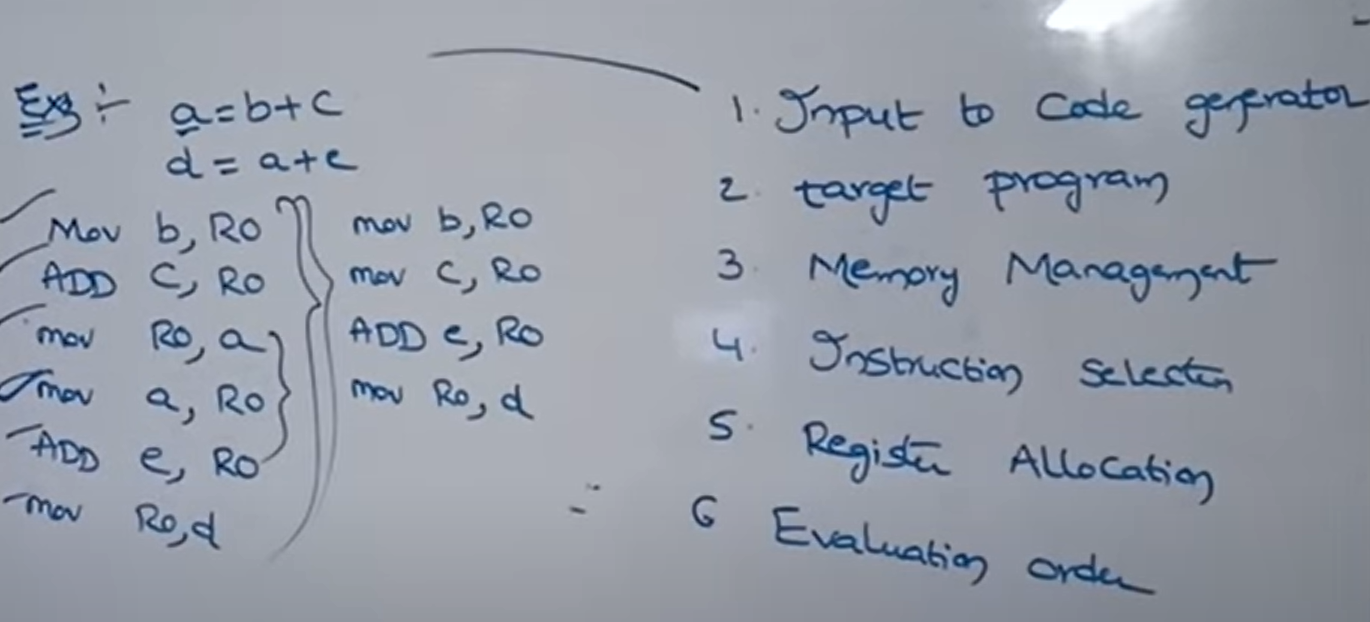 Ex :- a = b + c
d = a + e
Mov b, R0
ADD C, R0
mov R0, a
mov a, R0
ADD e, R0
mov R0, d
mov b, R0
mov C, R0
ADD e, R0
mov R0, d
1. Input to Code generator
2. target program
3. Memory Management
4. Instruction Selection
5. Register Allocation
6 Evaluation order